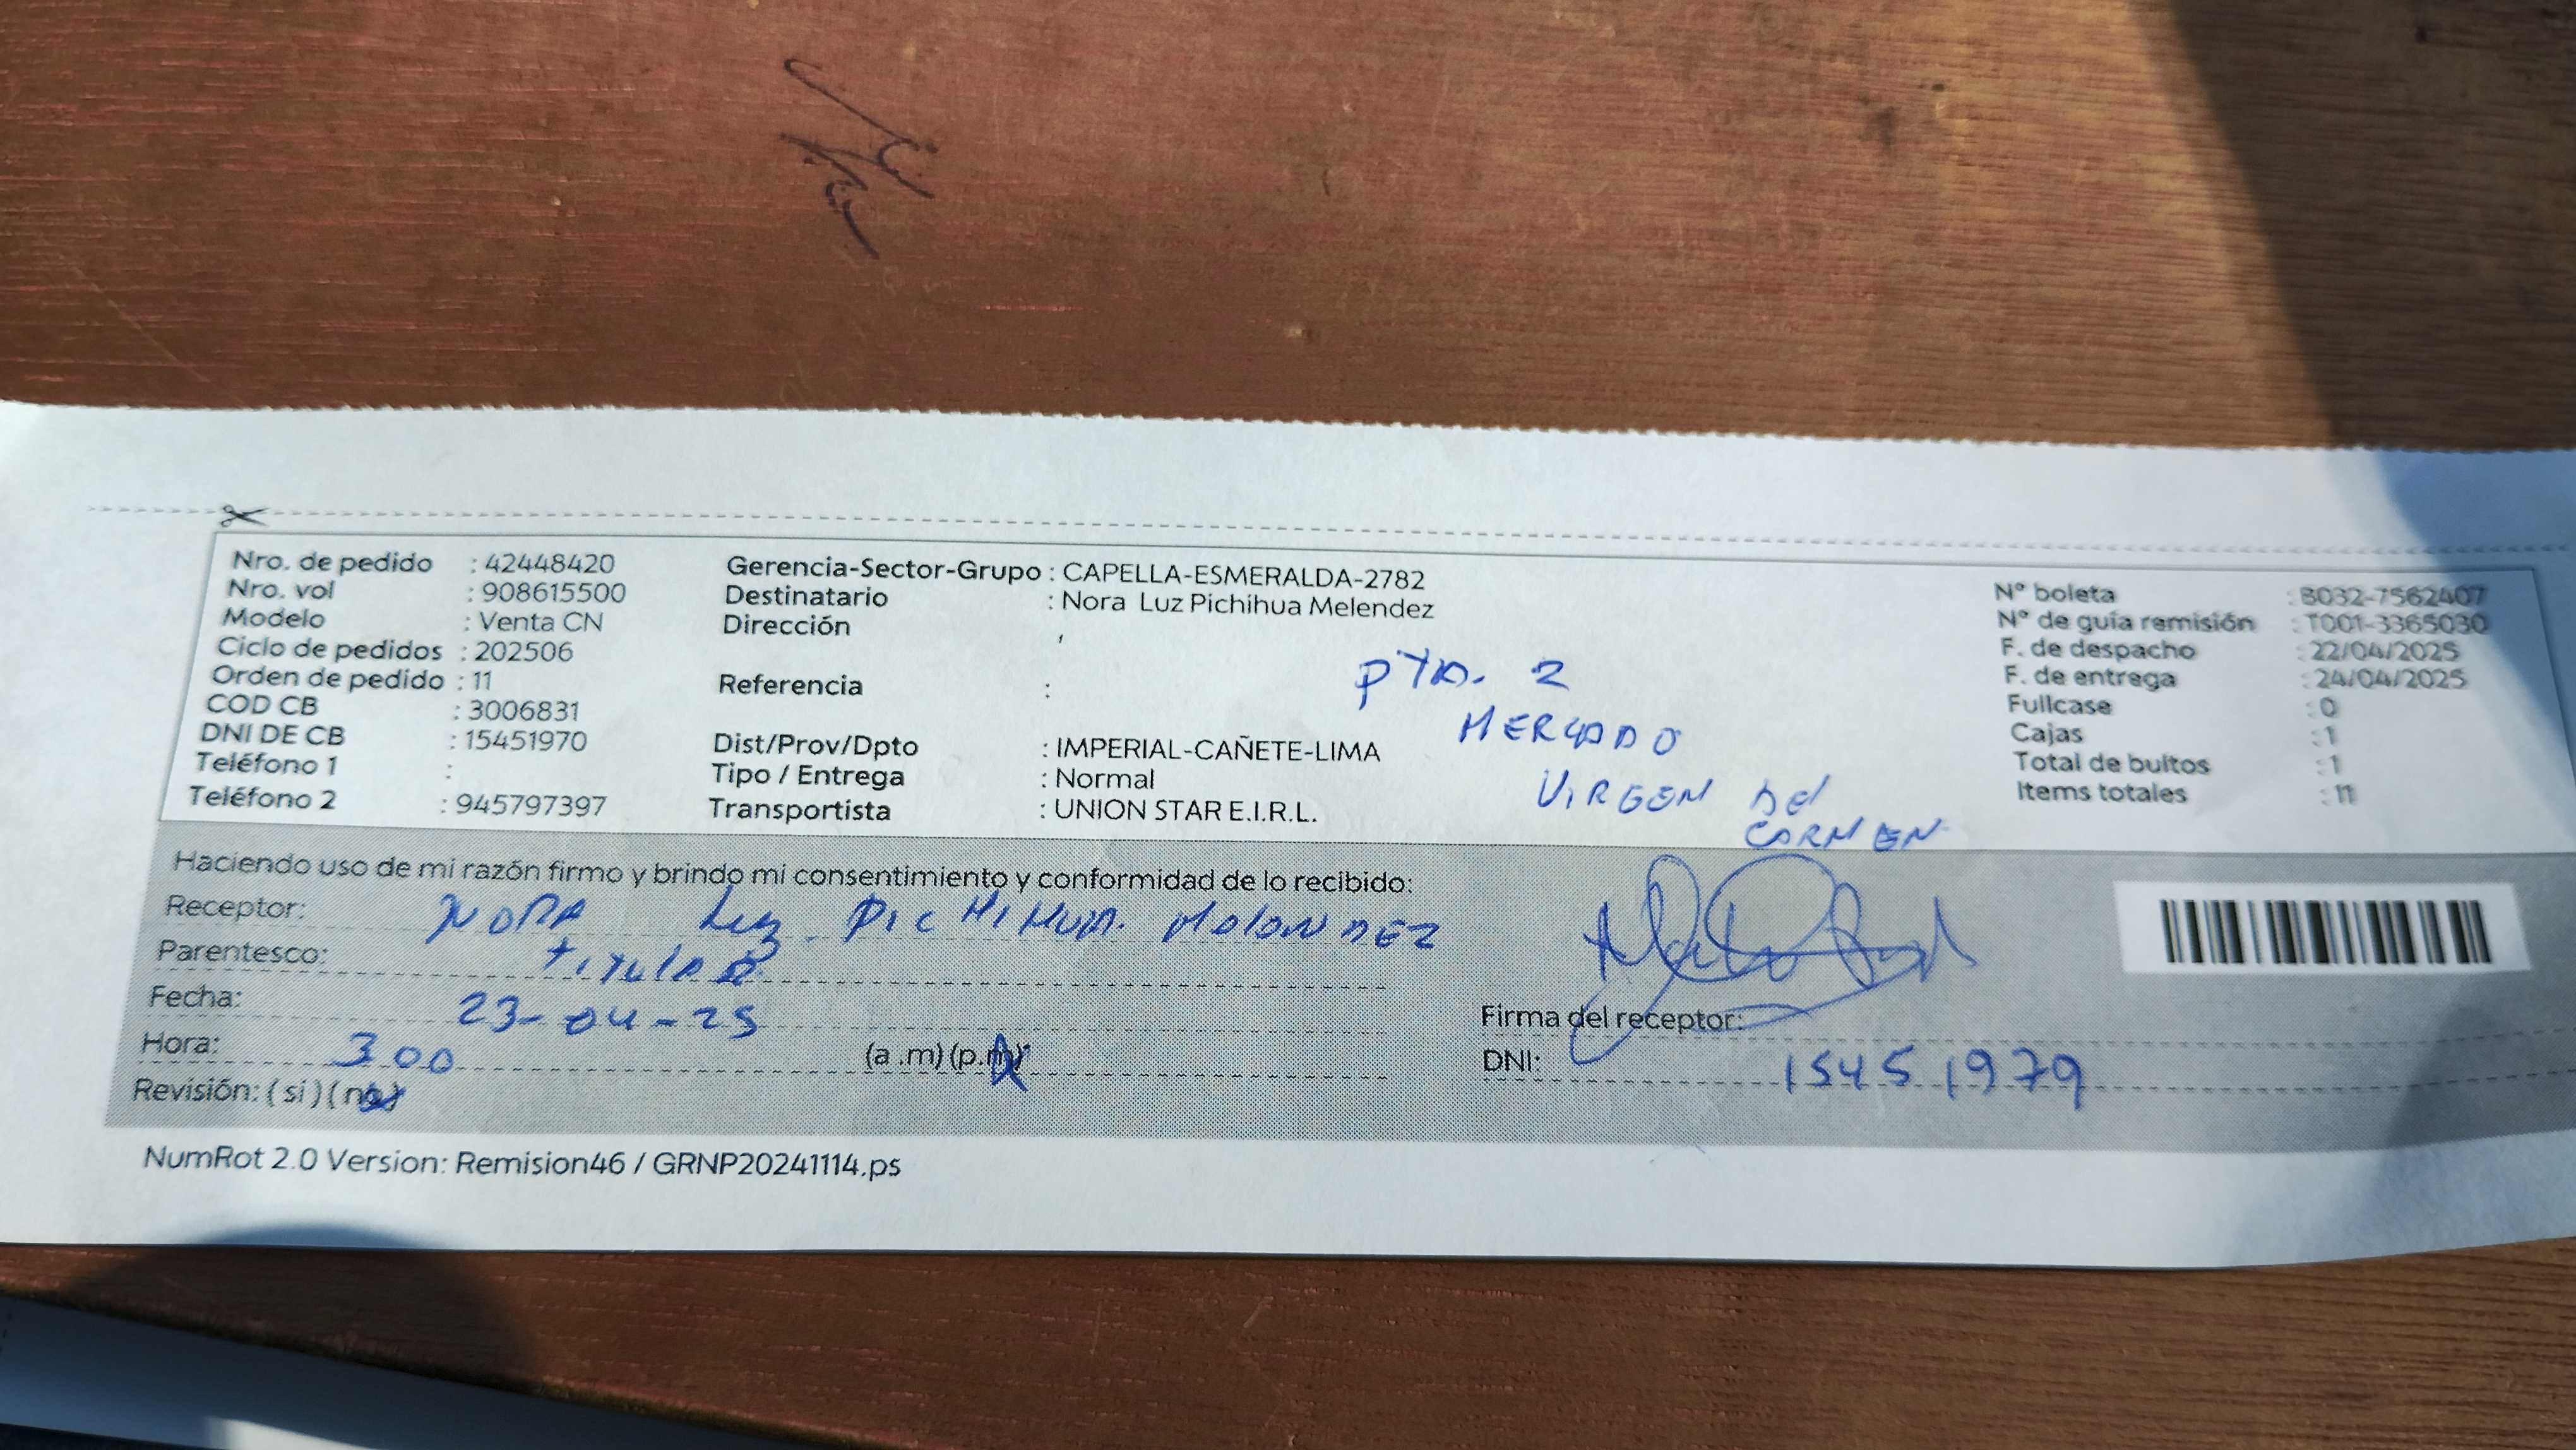 Nro. de pedido : 42448420
Nro. vol : 908615500
Modelo : Venta CN
Ciclo de pedidos : 202506
Orden de pedido : 11
COD CB : 3006831
DNI DE CB : 15451970
Teléfono 1 :
Teléfono 2 : 945797397
Gerencia-Sector-Grupo : CAPELLA-ESMERALDA-2782
Destinatario : Nora Luz Pichihua Melendez
Dirección ,
Referencia :
Dist/Prov/Dpto : IMPERIAL-CAÑETE-LIMA
Tipo / Entrega : Normal
Transportista : UNION STAR E.I.R.L.
PTA. 2
MERCADO
VIRGEN DEl
CARMEN
N° boleta : B032-7562407
N° de guía remisión : T001-3365030
F. de despacho : 22/04/2025
F. de entrega : 24/04/2025
Fullcase : 0
Cajas : 1
Total de bultos : 1
Items totales : 11
Haciendo uso de mi razón firmo y brindo mi consentimiento y conformidad de lo recibido:
Receptor: NORA Luz PICHIHUA. MElENDEZ
Parentesco: tiTulAR
Fecha: 23-04-25
Hora: 3 00 (a .m) (p.m)
Revisión: ( si ) ( no )
Firma del receptor:
DNI: 15451979
NumRot 2.0 Version: Remision46 / GRNP20241114.ps